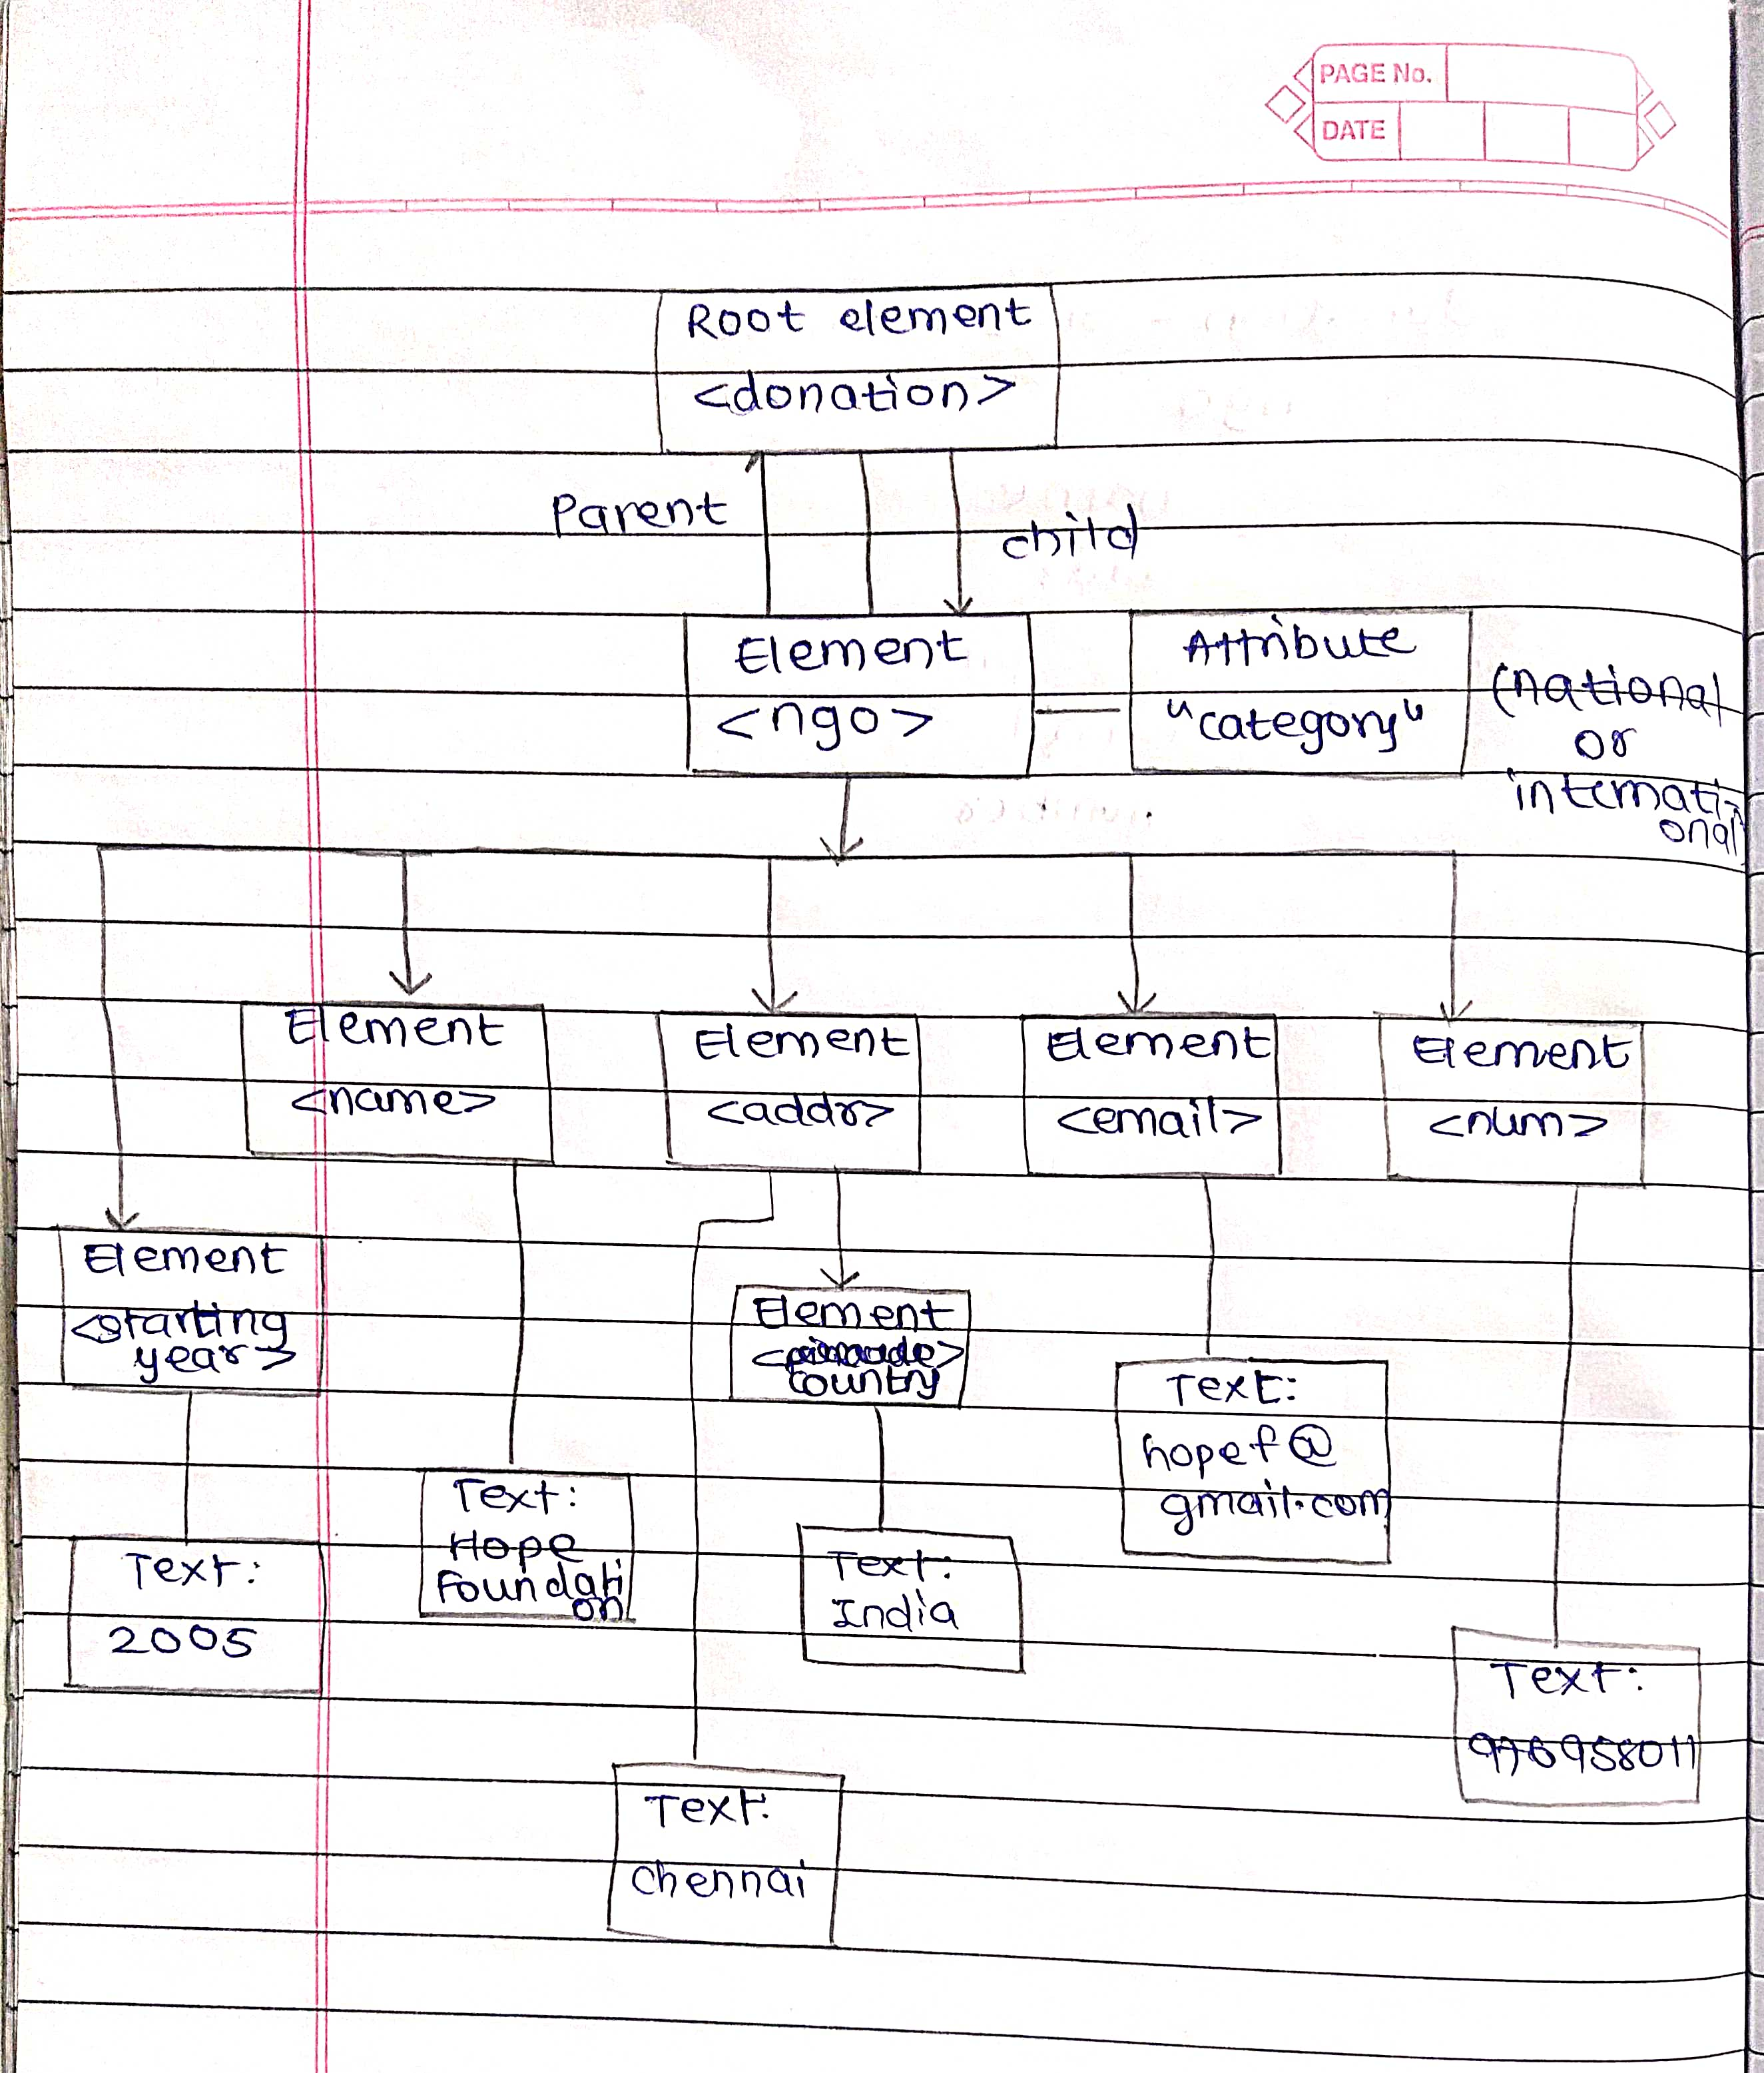 PAGE No.
DATE
Root element
<donation>
Parent
child
Element
<ngo>
Attribute
"category"
(national
or
internati-
onal
Element
<name>
Element
<addr>
Element
<email>
Element
<num>
Element
<starting
year>
Element
country
Text:
hopef@
gmail.com
Text:
Hope
Foundati
on
Text:
India
Text:
2005
Text:
976958011
Text:
chennai